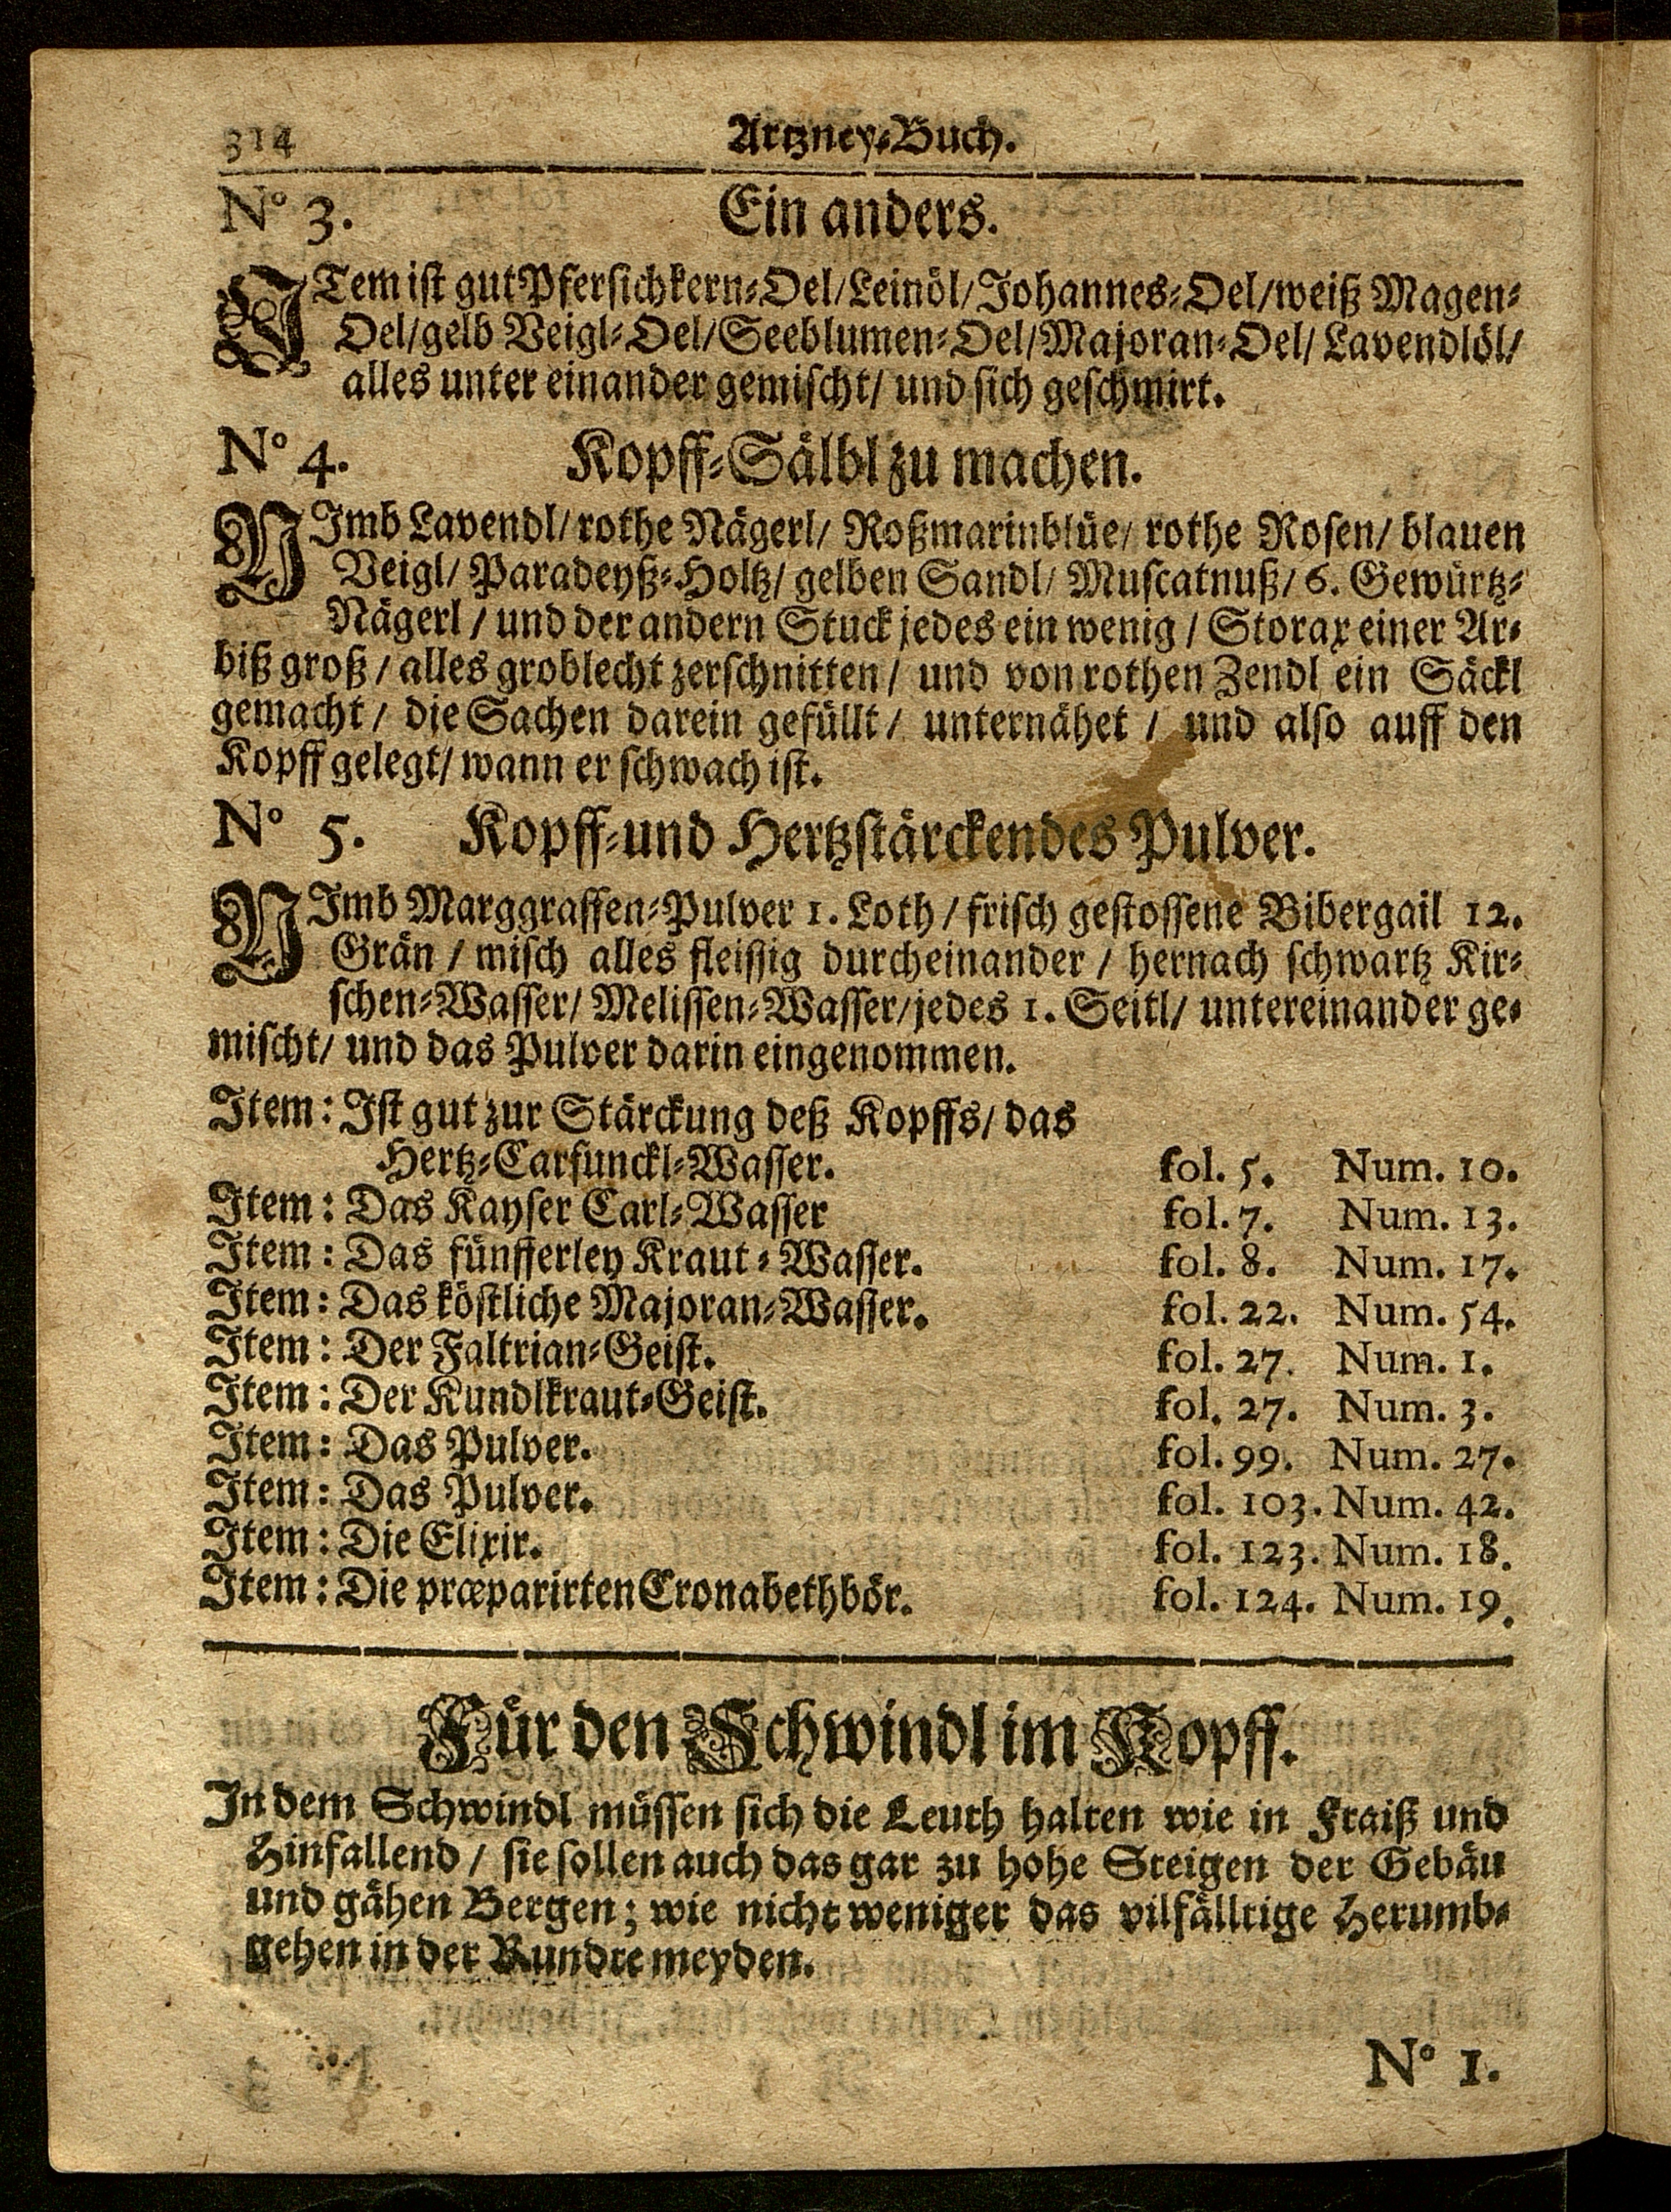 314 Artzney-Buch.
No 3. Ein anders.
ITem ist gut Pfersichkern-Oel/Leinöl/Johannes-Oel/weiß Magen-
Oel/gelb Veigl-Oel/Seeblumen-Oel/Majoran-Oel/ Lavendlöl/
alles unter einander gemischt/ und sich geschmirt.
No 4. Kopff-Sälbl zu machen.
NImb Lavendl/ rothe Nägerl/ Roßmarinblüe/ rothe Rosen/ blauen
Veigl/ Paradeyß-Holtz/ gelben Sandl/ Muscatnuß/ 6. Gewürtz-
Nägerl / und der andern Stuck jedes ein wenig / Storax einer Ar-
biß groß / alles groblecht zerschnitten / und von rothen Zendl ein Säckl
gemacht / die Sachen darein gefüllt / unternähet / und also auff den
Kopff gelegt/ wann er schwach ist.
No 5. Kopff-und Hertzstärckendes Pulver.
NImb Marggraffen-Pulver 1. Loth / frisch gestossene Bibergail 12.
Grän / misch alles fleissig durcheinander / hernach schwartz Kir-
schen-Wasser/ Melissen-Wasser/jedes 1. Seitl/ untereinander ge-
mischt/ und das Pulver darin eingenommen.
Item: Ist gut zur Stärckung deß Kopffs/ das
Hertz-Carfunckl-Wasser. fol. 5. Num. 10.
Item: Das Kayser Carl-Wasser fol. 7. Num. 13.
Item: Das fünfferley Kraut-Wasser. fol. 8. Num. 17.
Item: Das köstliche Majoran-Wasser. fol. 22. Num. 54.
Item: Der Faltrian-Geist. fol. 27. Num. 1.
Item: Der Kundlkraut-Geist. fol. 27. Num. 3.
Item: Das Pulver. fol. 99. Num. 27.
Item: Das Pulver. fol. 103. Num. 42.
Item: Die Elixir. fol. 123. Num. 18.
Item: Die præparirten Cronabethbör. fol. 124. Num. 19.
Für den Schwindl im Kopff.
In dem Schwindl müssen sich die Leuth halten wie in Fraiß und
Hinfallend / sie sollen auch das gar zu hohe Steigen der Gebäu
und gähen Bergen; wie nicht weniger das vilfälltige Herumb-
gehen in der Rundte meyden.
No 1.